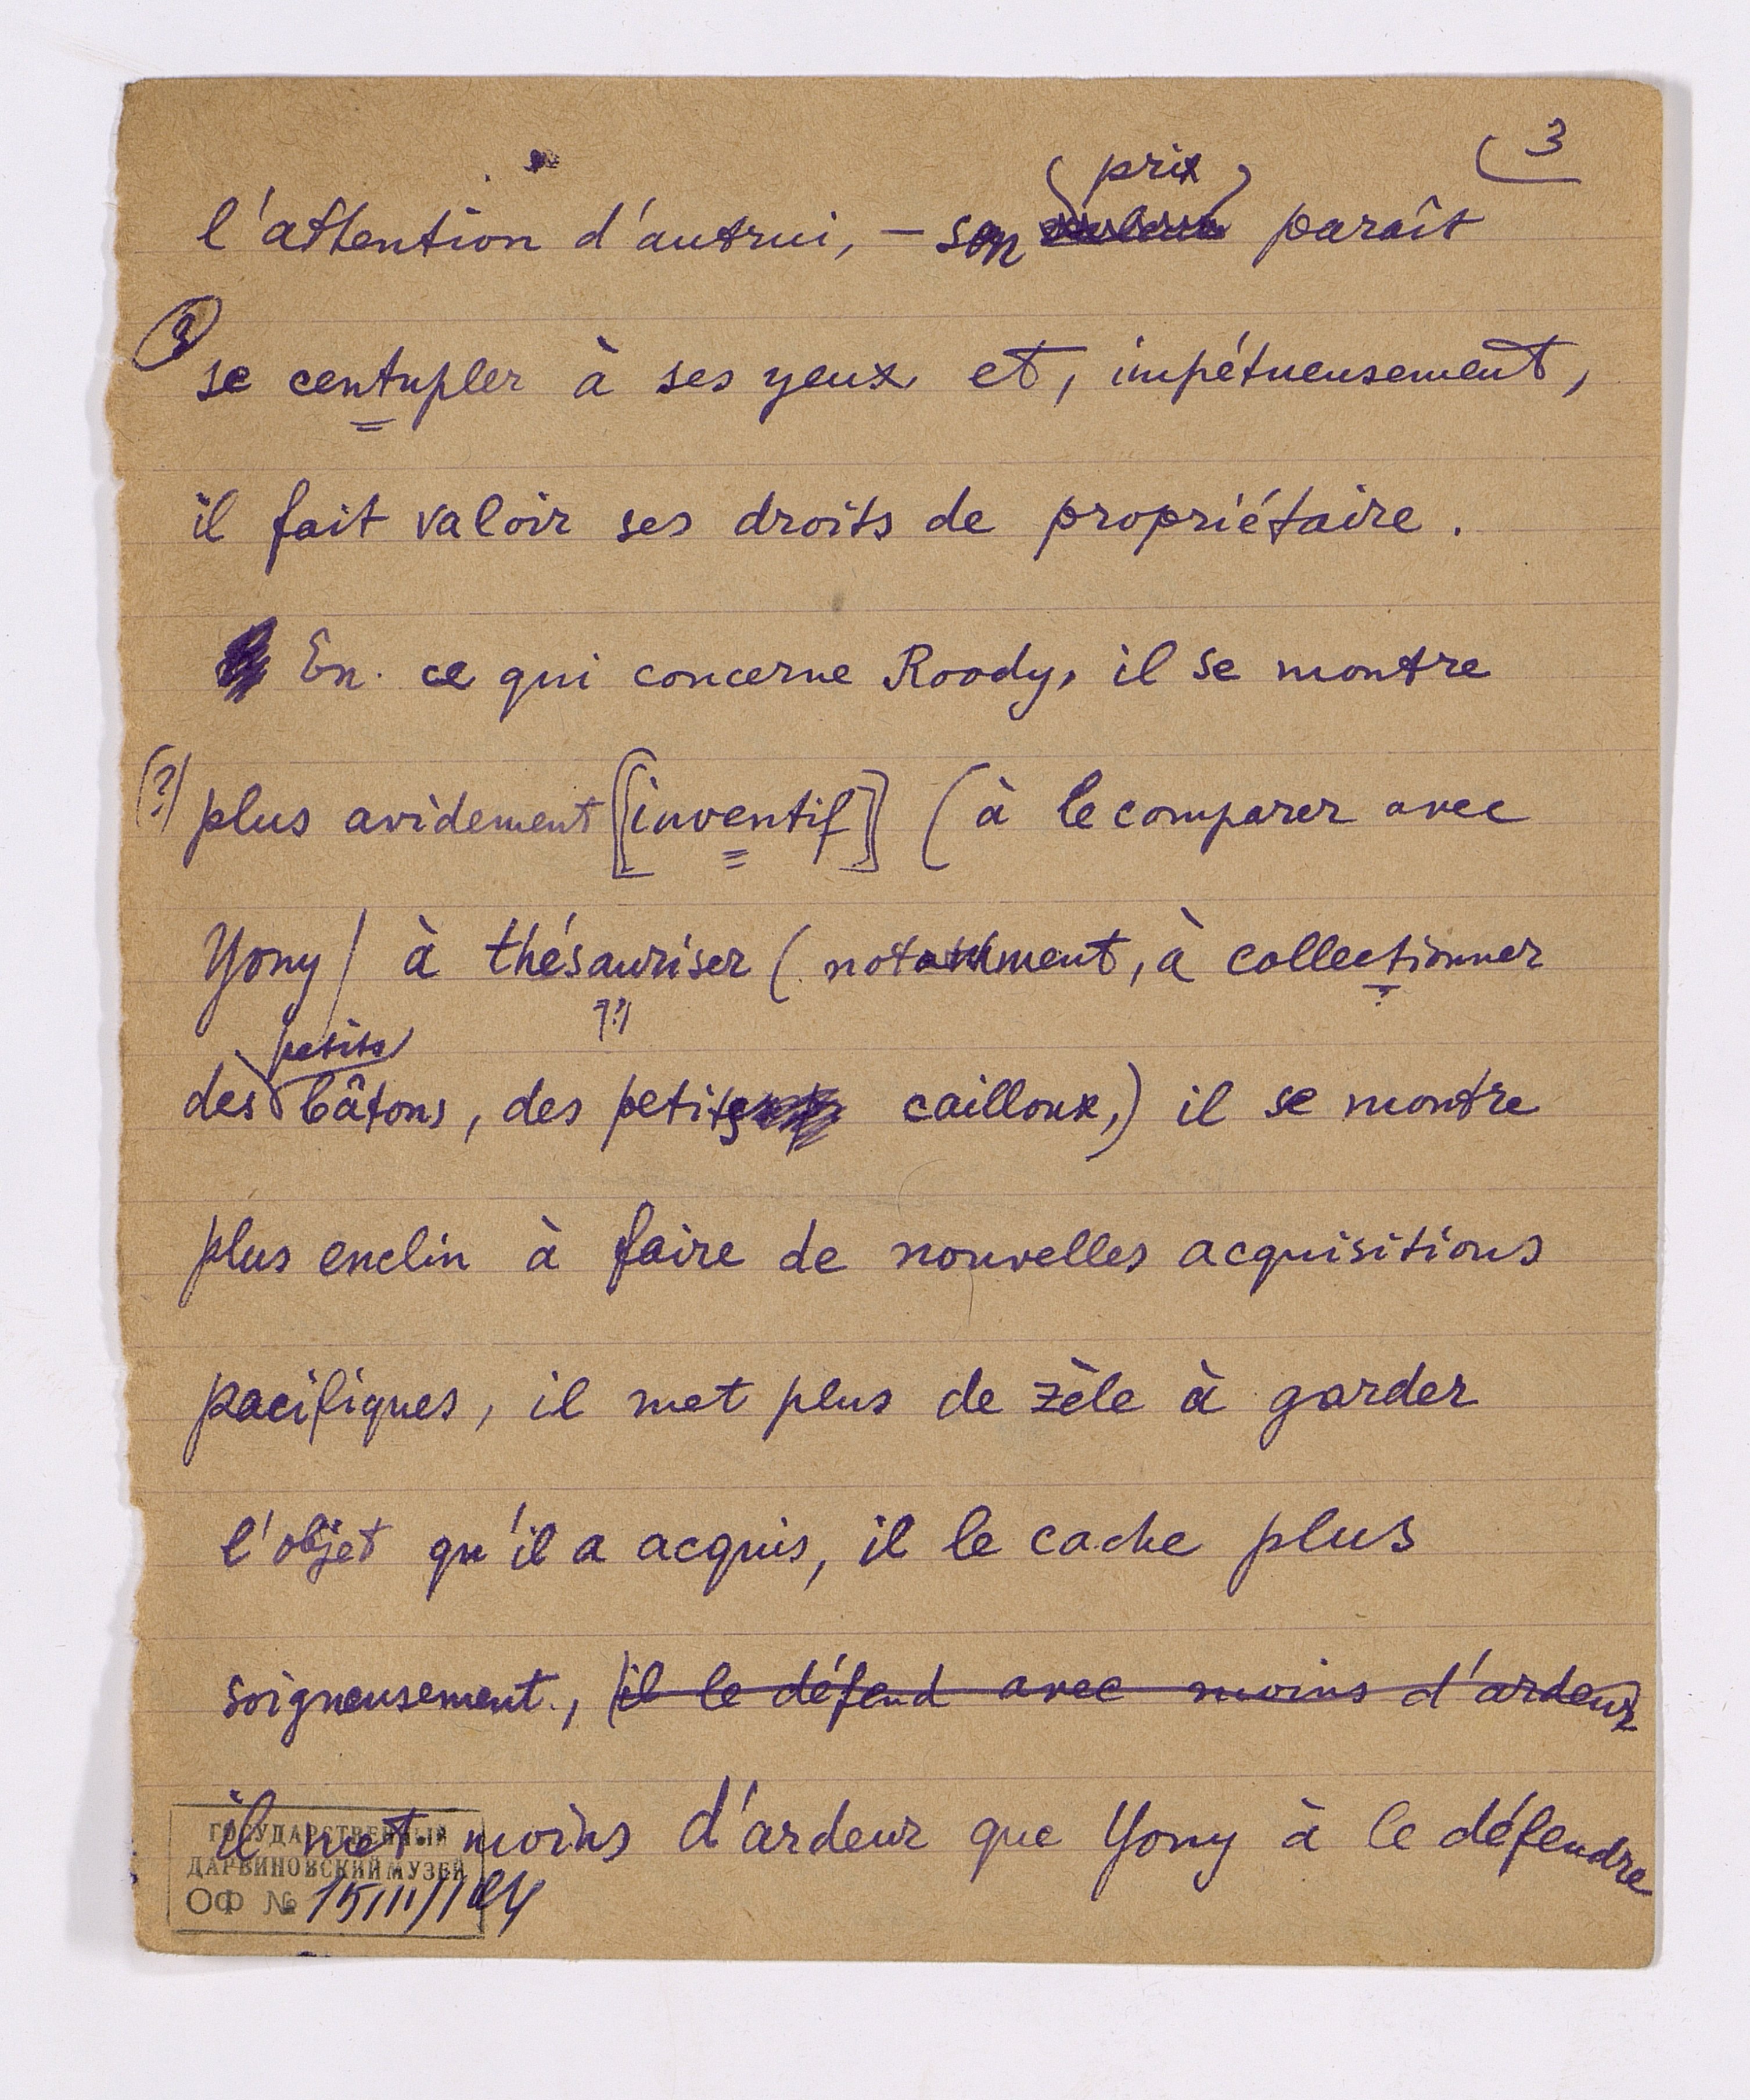 3
prix
l'attention d'autrui, – son paraît
3
se centupler à ses yeux et, impétueusement,
il fait valoir ses droits de propriétaire.
En ce qui concerne Roody, il se montre
(?) plus avidement [inventif] (à le comparer avec
Yony) à thésauriser (notamment, à collectionner
??
petits
des bâtons, des petits cailloux,) il se montre
plus enclin à faire de nouvelles acquisitions
pacifiques, il met plus de zèle à garder
l'objet qu'il a acquis, il le cache plus
soigneusement, (il le défend avec moins d'ardeur)
il met moins d'ardeur que Yony à le défendre
ГОСУДАРСТВЕННЫЙ
ДАРВИНОВСКИЙ МУЗЕЙ
ОФ №